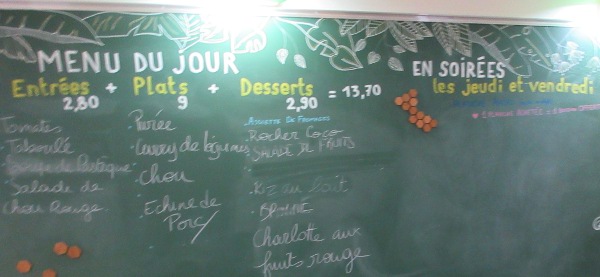 MENU DU JOUR
Entrées + Plats + Desserts = 13,70
2,80 9 2,90
Tomates
Taboulé
Salade de
Chou Rouge
Purée
Curry de légumes
Chou
Echine de
Porc
ASSIETTE DE FROMAGES
Rocher Coco
SALADE DE FRUITS
Riz au lait
BROWNIE
Charlotte aux
fruits rouge
EN SOIRÉES
les jeudi et vendredi